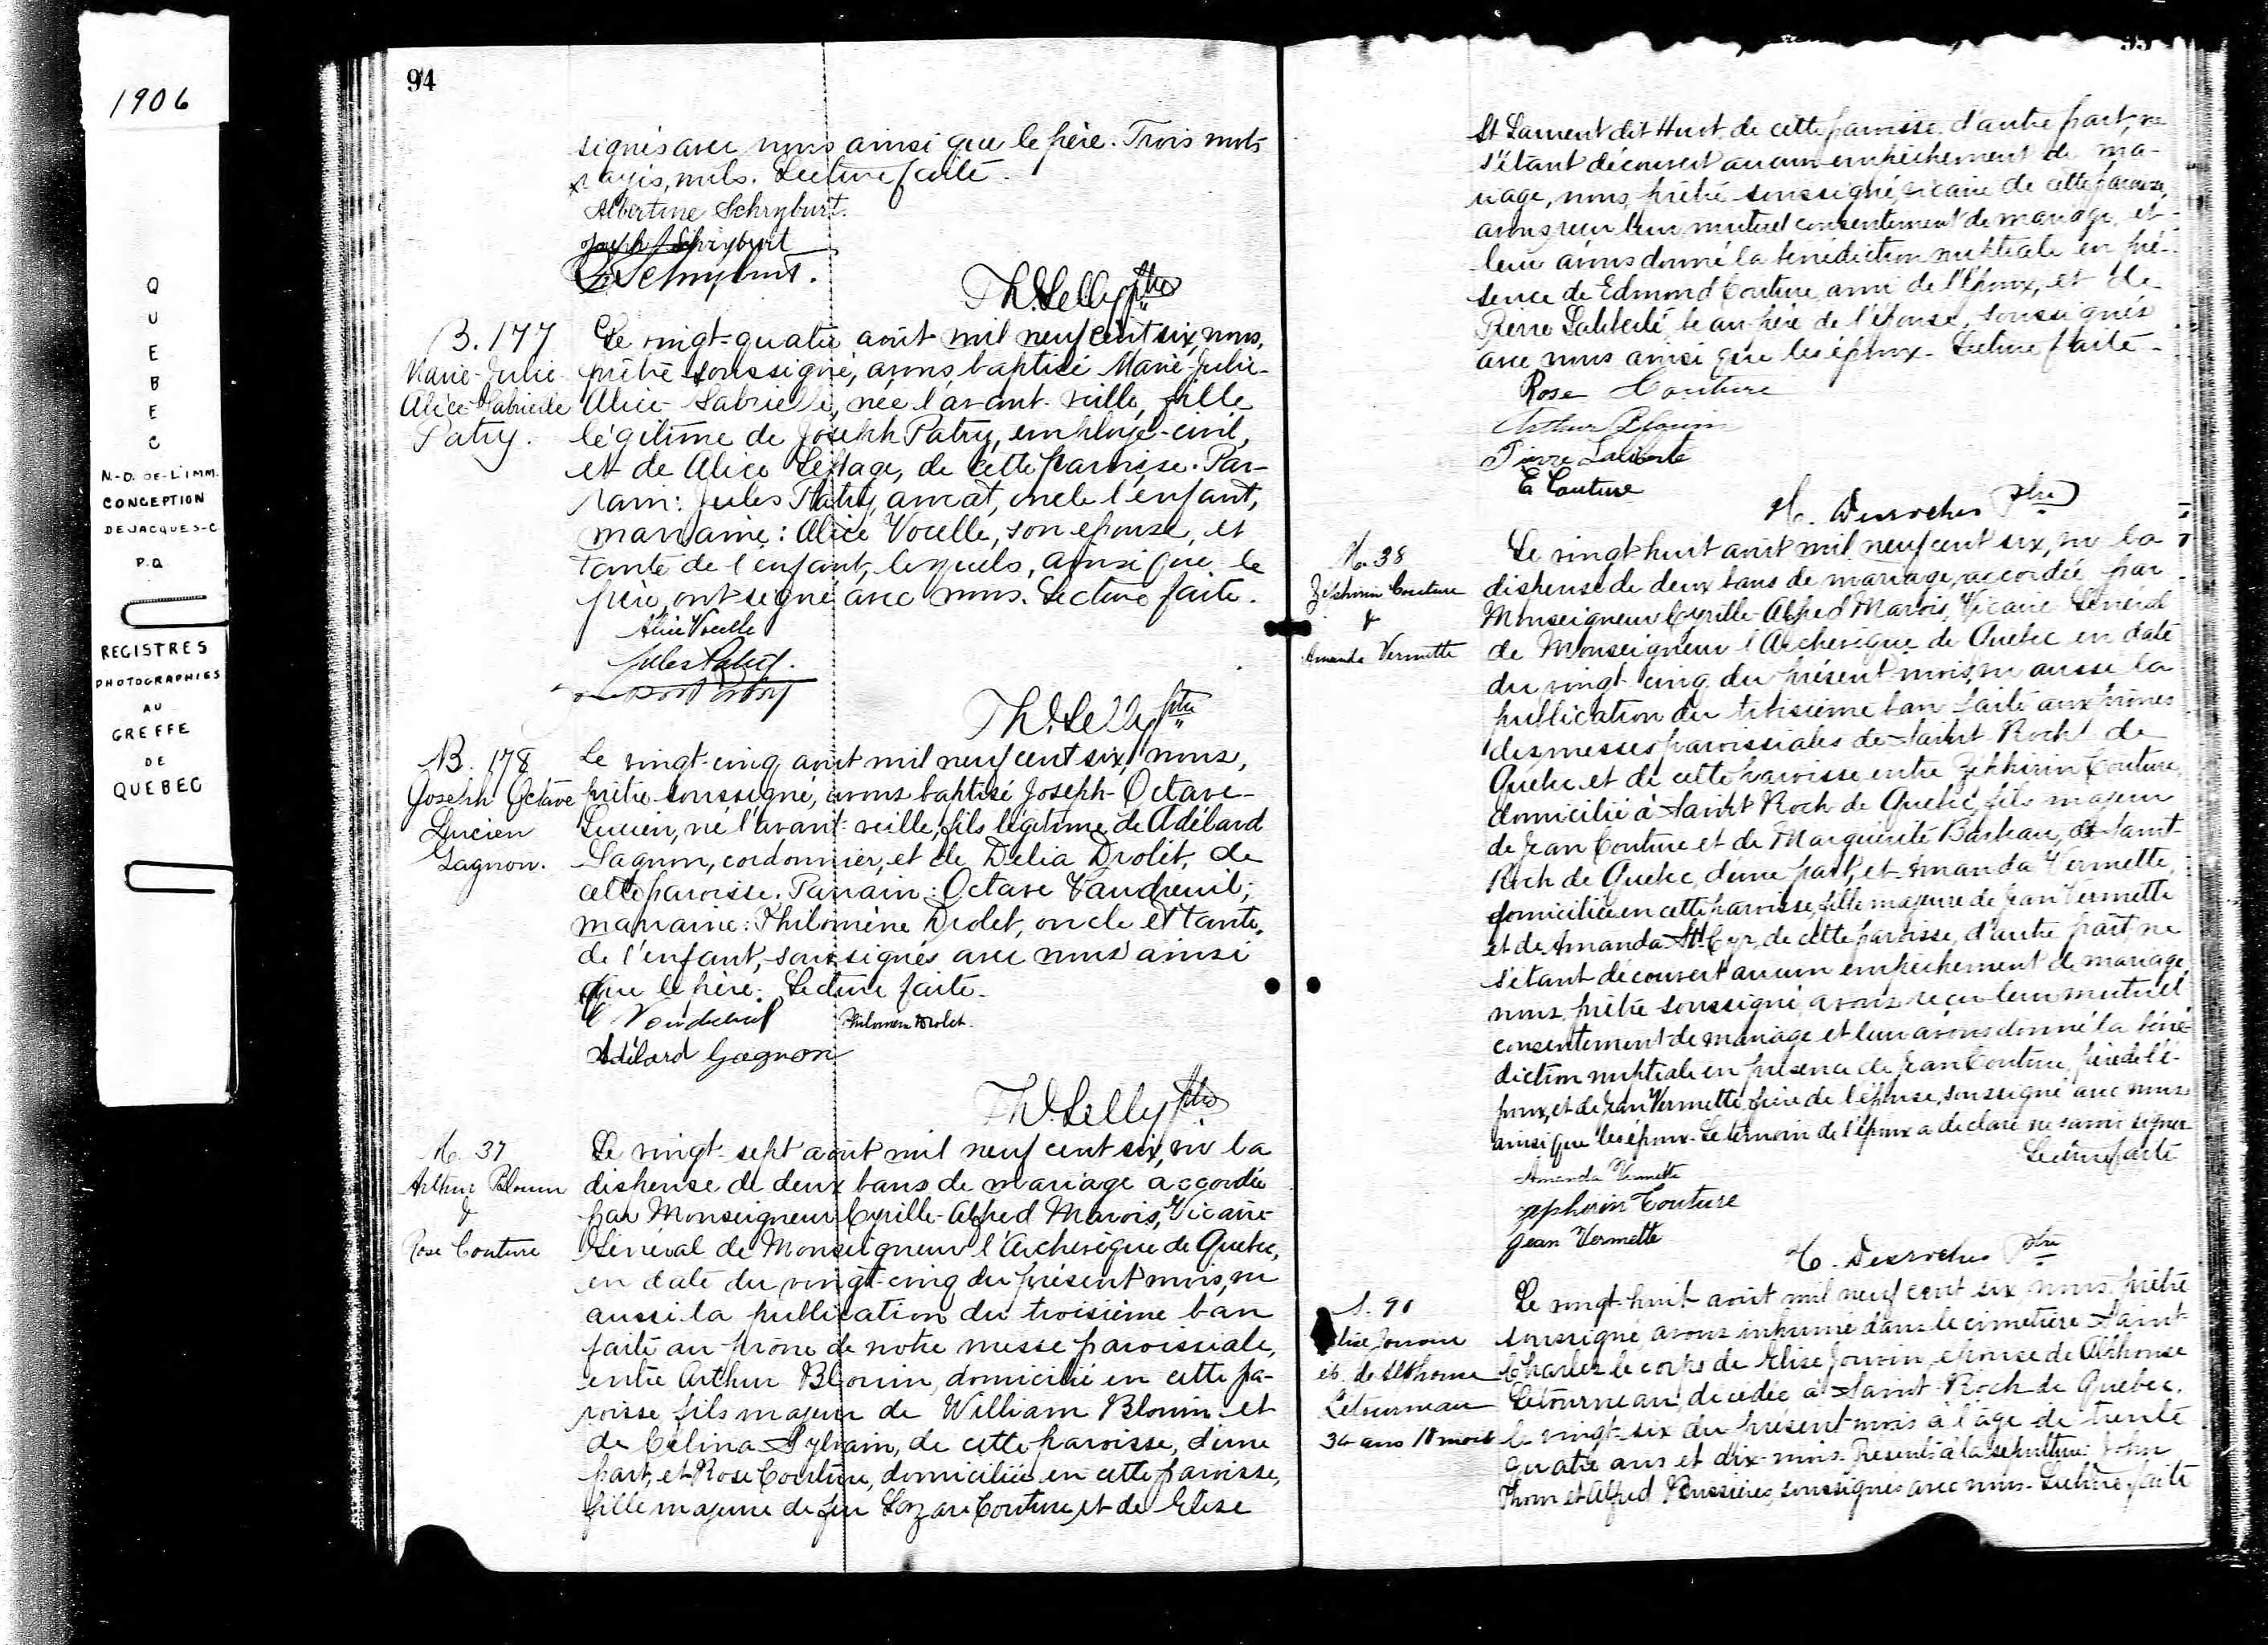 1906
QUEBEC
N.-D. DE-L'IMM.
CONCEPTION
DE JACQUES-C
P.Q
REGISTRES
PHOTOGRAPHIES
AU
GREFFE
DE
QUEBEC
94
signés avec nous ainsi que le père. Trois mots
rayés, nuls. Lecture faite.
Albertine Schryburt.
Joseph Schryburt
Schryburt.
ptre
B. 177
Marie-Julie
Alice Gabrielle
Patry.
Le vingt-quatre août mil neuf cent six, nous,
prêtre soussigné, avons baptisé Marie-Julie-
Alice-Gabrielle, née l'avant-veille, fille
légitime de Joseph Patry, employé-civil,
et de Alice Lepage, de cette paroisse. Par-
rain: Jules Patry, avocat, oncle l'enfant,
marraine: Alice Vocelle, son épouse, et
tante de l'enfant, lesquels, ainsi que le
père, ont signé avec nous. Lecture faite.
Alice Vocelle
Jules Patry.
Patry
ptre
B. 178
Joseph Octave
Lucien
Gagnon.
Le vingt-cinq août mil neuf cent six, nous,
prêtre soussigné, avons baptisé Joseph-Octave-
Lucien, né l'avant-veille, fils légitime de Adélard
Gagnon, cordonnier, et de Delia Drolet, de
cette paroisse. Parrain: Octave Vaudreuil;
marraine: Philomène Drolet, oncle et tante
de l'enfant, soussignés avec nous ainsi
que le père. Lecture faite.
Vaudreuil Philomene Drolet.
Adélard Gagnon
ptre
M. 37
Arthur Blouin
&
Rose Couture
Le vingt-sept août mil neuf cent six, vu la
dispense de deux bans de mariage accordée
par Monseigneur Cyrille-Alfred Marois, Vicaire-
Général de Monseigneur l'Archevêque de Québec,
en date du vingt-cinq du présent mois, vu
aussi la publication du troisième ban
faite au prône de notre messe paroissiale,
entre Arthur Blouin, domicilié en cette pa-
roisse, fils majeur de William Blouin et
de Célina Sylvain, de cette paroisse, d'une
part, et Rose Couture, domiciliée en cette paroisse,
fille majeure de feu Lazare Couture et de Elise
St Laurent dit Huot de cette paroisse d'autre part, ne
s'étant découvert aucun empêchement de ma-
riage, nous, prêtre soussigné, vicaire de cette paroisse,
avons reçu leur mutuel consentement de mariage et
leur avons donné la bénédiction nuptiale en pré-
sence de Edmond Couture, ami de l'époux, et de
Pierre Laliberté, beau-père de l'épouse, soussignés
avec nous ainsi que les époux. Lecture faite.
Rose Couture
Arthur Blouin
Pierre Laliberte
E Couture
H. Desroches ptre
M. 38
Zéphirin Couture
&
Amanda Vermette
Le vingt-huit août mil neuf cent six, vu la
dispense de deux bans de mariage, accordée par
Monseigneur Cyrille-Alfred Marois, Vicaire Général
de Monseigneur l'Archevêque de Québec en date
du vingt-cinq du présent mois, vu aussi la
publication du troisième ban faite aux prônes
des messes paroissiales de Saint Roch de
Québec et de cette paroisse entre Zéphirin Couture,
domicilié à Saint Roch de Québec, fils majeur
de Jean Couture et de Marguerite, de Saint-
Roch de Québec, d'une part, et Amanda Vermette,
domiciliée en cette paroisse, fille majeure de Jean Vermette
et de Amanda St Cyr, de cette paroisse, d'autre part, ne
s'étant découvert aucun empêchement de mariage,
nous, prêtre soussigné, avons reçu leur mutuel
consentement de mariage et leur avons donné la béné-
diction nuptiale en présence de Jean Couture, père de l'é-
poux, et de Jean Vermette, père de l'épouse, soussigné avec nous
ainsi que les époux. Le témoin de l'époux a déclaré ne savoir signer.
Lecture faite
Amanda Vermette
Zephirin Couture
Jean Vermette
H. Desroches ptre
S. 90
Elise Jouvin
ép. de Alphonse
Letourneau
34 ans 10 mois
Le vingt-huit août mil neuf cent six nous, prêtre
soussigné, avons inhumé dans le cimetière Saint-
Charles le corps de Elise Jouvin, épouse de Alphonse
Letourneau, décédée à Saint-Roch de Québec,
le vingt-six du présent mois à l'âge de trente
quatre ans et dix mois. Présents à la sépulture: John
Thom et Alfred Bussières, soussignés avec nous. Lecture faite